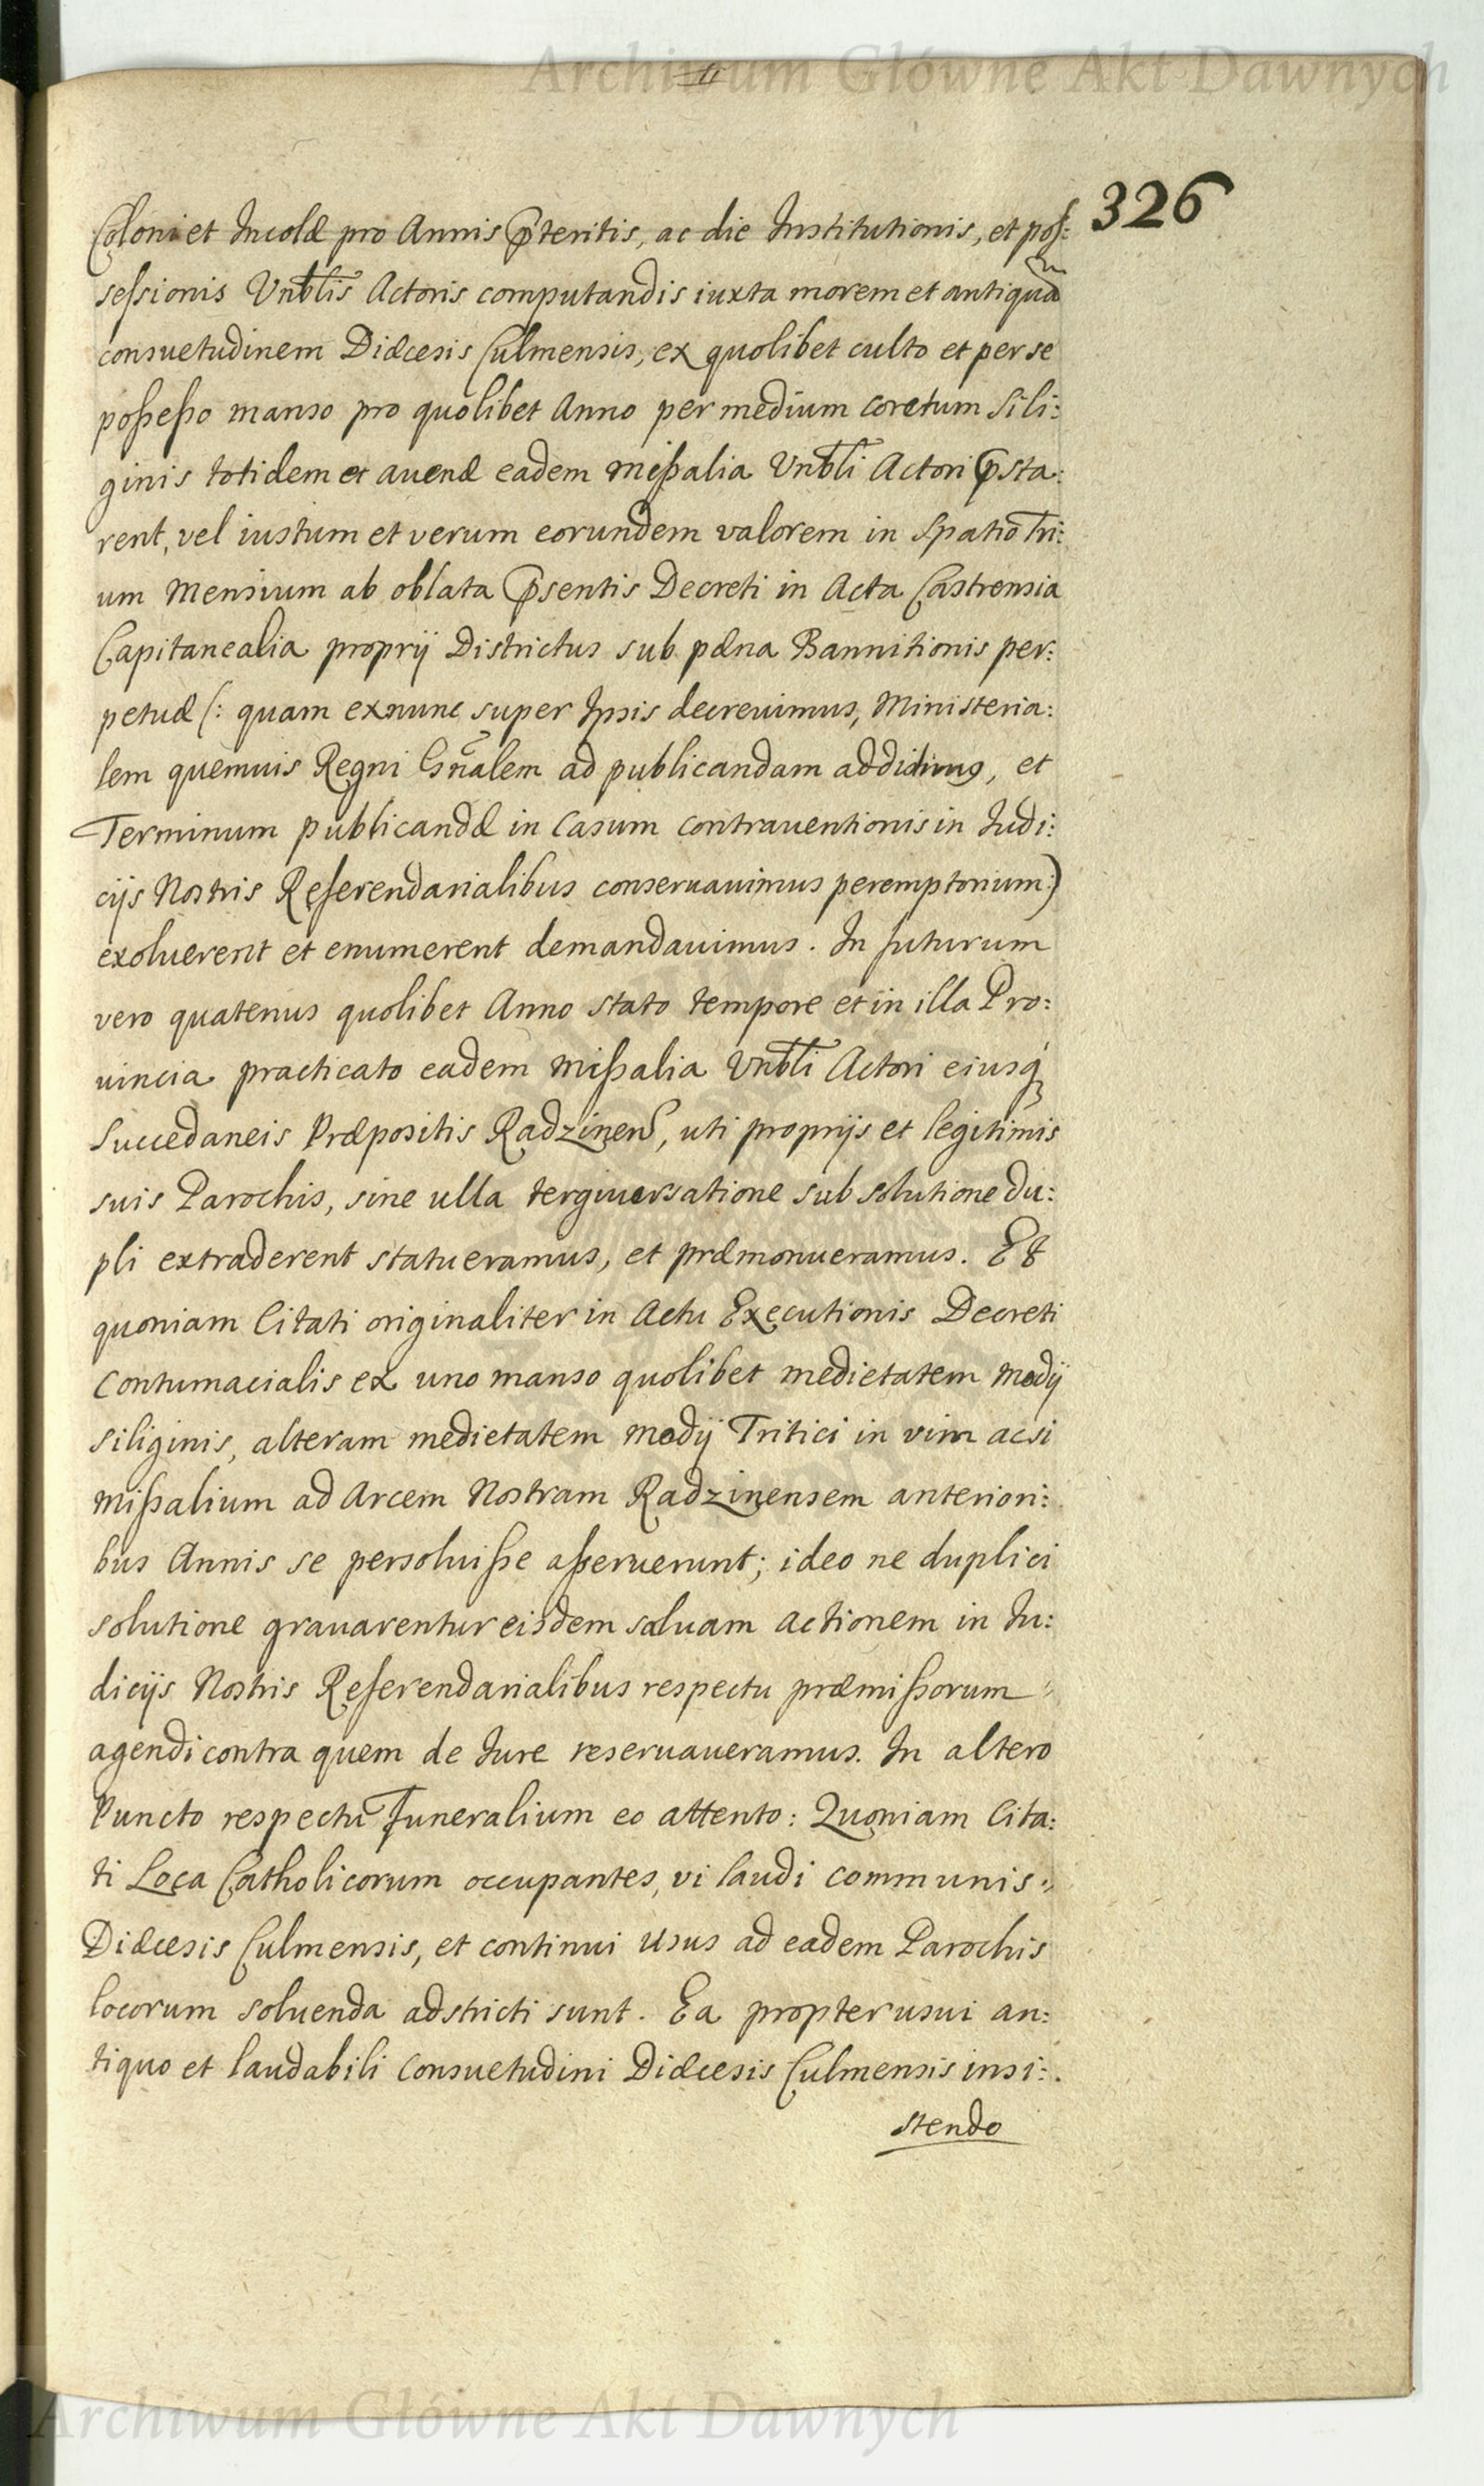 Archiwum Główne Akt Dawnych
326
Coloni et Incolæ pro Annis p̃teritis, ac die Institutionis, et pos:
sessionis Vnbĩlis Actoris computandis iuxta morem et antiquã
consuetudinem Diæcesis Culmensis, ex quolibet culto et per se
possesso manso pro quolibet Anno per medium coretum Sili:
ginis totidem et auenæ eadem missalia Vnbĩli Actori p̃sta:
rent, vel iustum et verum eorundem valorem in Spatio Tri:
um Mensium ab oblata p̃sentis Decreti in Acta Castrensia
Capitanealia proprij Districtus sub pæna Bannitionis per:
petuæ (: quam exnunc super Ipsis decreuimus, Ministeria:
lem quemuis Regni Gñalem ad publicandam addidimus, et
Terminum publicandæ in Casum contrauentionis in Iudi:
cijs Nostris Referendarialibus conseruauimus peremptorium:)
exoluerent et enumerent demandauimus. In futurum
vero quatenus quolibet Anno stato tempore et in illa Pro:
uincia practicato eadem missalia Vnbĩli Actori eiusq́
Succedaneis Præpositis Radzinen̄, uti proprijs et legitimis
suis Parochis, sine ulla tergiuersatione sub solutione du:
pli extraderent statueramus, et præmonueramus. Et
quoniam Citati originaliter in Actu Executionis Decreti
Contumacialis ex uno manso quolibet medietatem modij
siliginis, alteram medietatem modij Tritici in vim acsi
missalium ad Arcem Nostram Radzinensem anteriori:
bus Annis se persoluisse asseruerunt; ideo ne duplici
solutione grauarentur eisdem saluam actionem in Iu:
dicijs Nostris Referendarialibus respectu præmissorum
agendi contra quem de Iure reseruaueramus. In altero
Puncto respectu Funeralium eo attento: Quoniam Cita:
ti Loca Catholicorum occupantes, vi laudi communis
Diæcesis Culmensis, et continui usus ad eadem Parochis
locorum soluenda adstricti sunt. Ea propter usui an:
tiquo et laudabili Consuetudini Diæcesis Culmensis insi:
stendo
Archiwum Główne Akt Dawnych